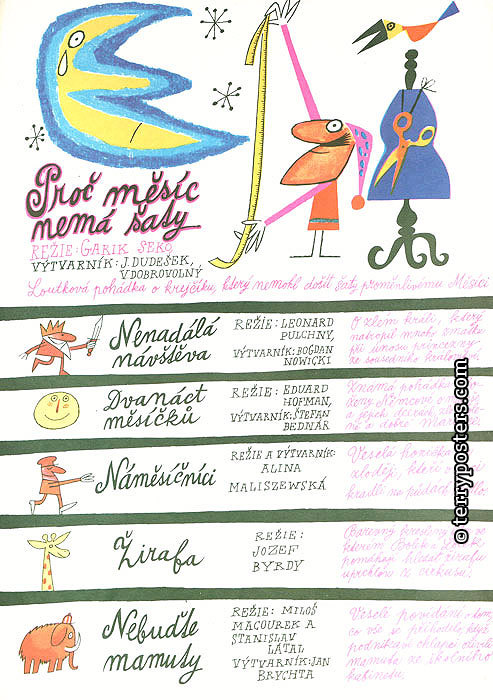 Proč měsíc
nemá šaty
REŽIE: GARIK SEKO
VÝTVARNÍK: J. DUDEŠEK,
V. DOBROVOLNÝ
Loutková pohádka o krejčíku, který nemohl došít šaty proměnlivému Měsíci
Nenadálá
návštěva
REŽIE: LEONARD
PULCHNY,
VÝTVARNÍK: BOGDAN
NOWICKI
O zlém králi, který
natropil mnoho zmatku
při únosu princezny
ze sousedního království
Dvanáct
měsíčků
REŽIE: EDUARD
HOFMAN,
VÝTVARNÍK: ŠTEFAN
BEDNÁŘ
Známá pohádka Bo-
ženy Němcové o
a jejích dcerách
né a dobré
Náměsíčníci
REŽIE A VÝTVARNÍK:
ALINA
MALISZEWSKÁ
Veselá
zloději, kteří v noci
kradli na půdách
Žirafa
REŽIE:
JOZEF
BYRDY
Barevný
kterém Bolek a Lolek
pomáhají hledat žirafu
uprchlou z cirkusu.
Nebuďte
mamuty
REŽIE: MILOŠ
MACOUREK A
STANISLAV
LÁTAL
VÝTVARNÍK: JAN
BRYCHTA
Veselé povídání o tom,
co vše se přihodilo, když
podnikaví chlapci oživili
mamuta ze školního
kabinetu.
© terryposters.com